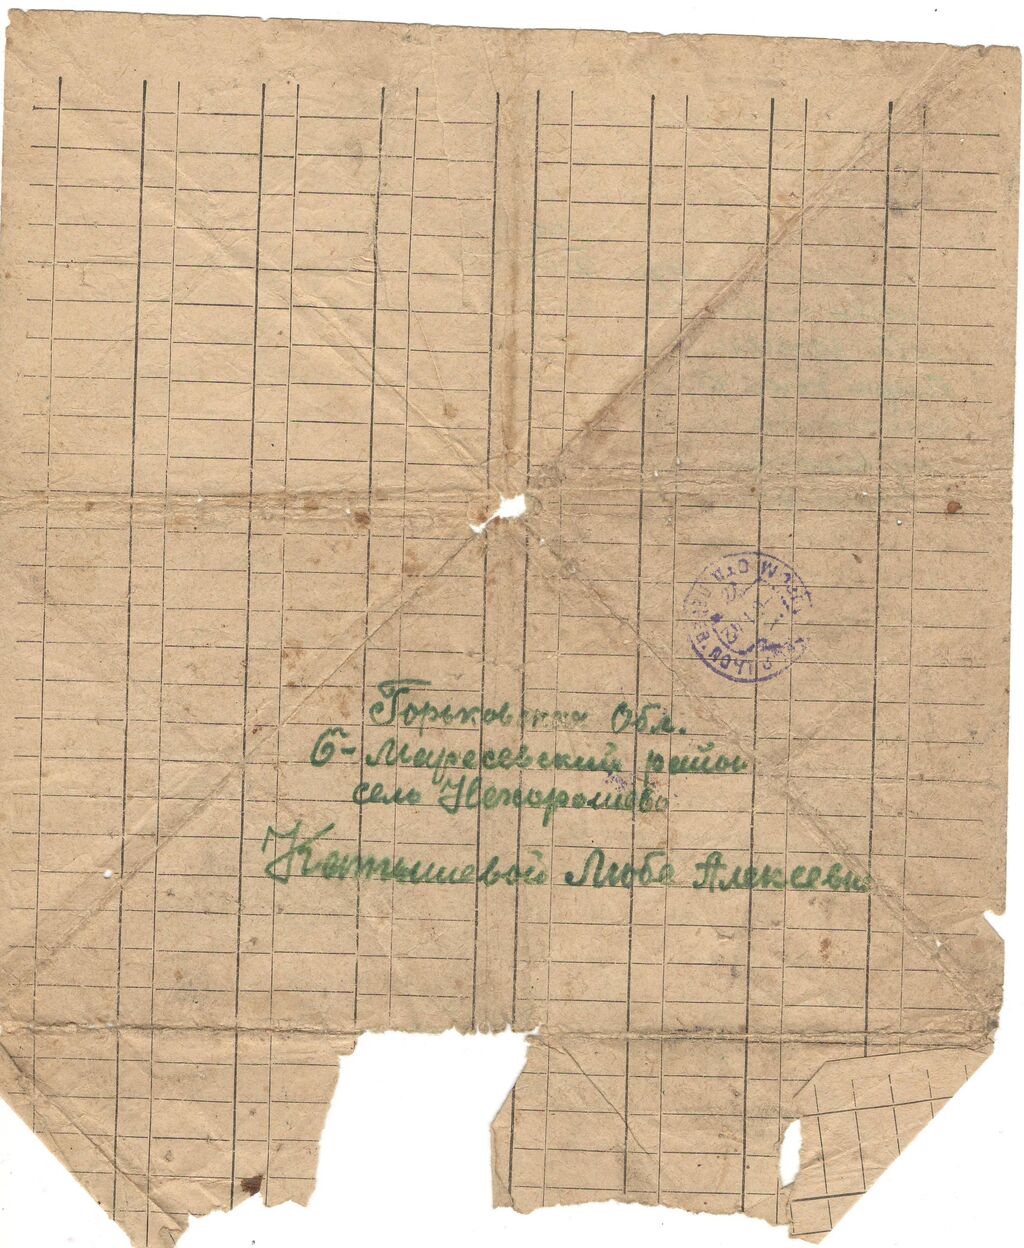 Горьковская Обл.
Б-Маресевский район
село Нехорошево
Катышевой Люба Алексевне